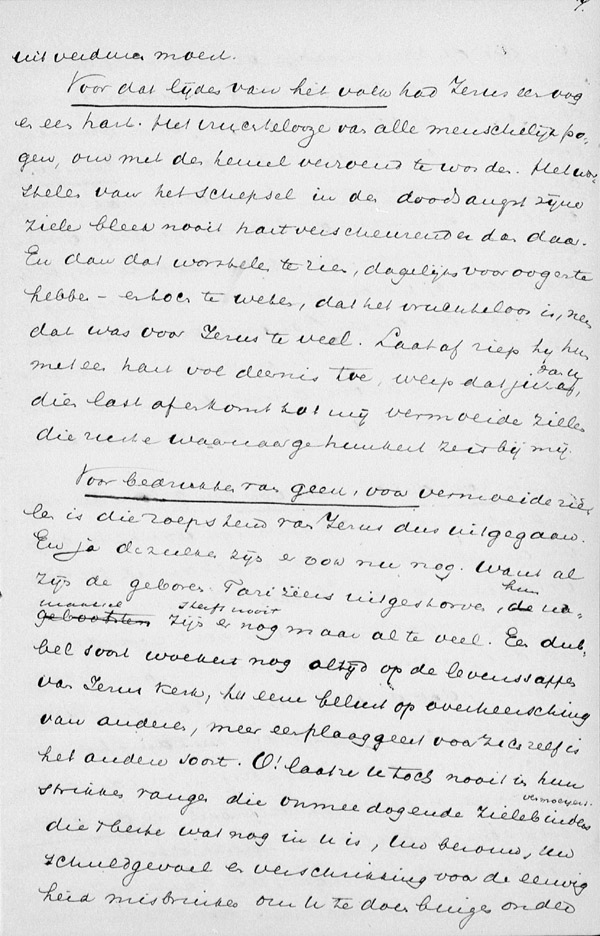 7.
uit verdere moed.
Voor dat lijden van het volk had Jezus een oog
en een hart. Het vruchtelooze van alle menschelijk po-
gen, om met den hemel verzoend te worden. Het wor-
stelen van het schepsel in den doodsangst zijner
ziele bleek nooit hartverscheurender dan daar.
En dan dat worstelen te zien, dagelijks voor oogen te
hebben – en toch te weten, dat het vruchteloos is, neen
dat was voor Jezus te veel. Laat af riep hij hun
met een hart vol deernis toe, werp dat juk af,
dien last af en komt tot mij vermoeide zielen
die ruste waarnaar ge hunkert zei bij mij.
Voor bedrukten van geest, voor vermoeide zie-
len is die roepstem van Jezus dus uitgegaan.
En ja dezulken zijn er ook nu nog. Want al
zijn de geboren Farizëers uitgestorven, hun
de na-
maaksel sterft nooit
gebootsten zijn er nog maar al te veel. Een dub-
bel soort woekert nog altijd op de levenssappen
van Jezus Kerk, het eene belust op overheersching
van anderen, meer een plaaggeest voor zich zelf is
het andere soort. O! laat u toch nooit in hun
strikken vangen die onmeedogende zielebinders
die 't beste wat nog in u is, uw berouw, uw
schuldgevoel en verschrikking voor de eeuwig
heid misbruiken om u te doen buigen onder